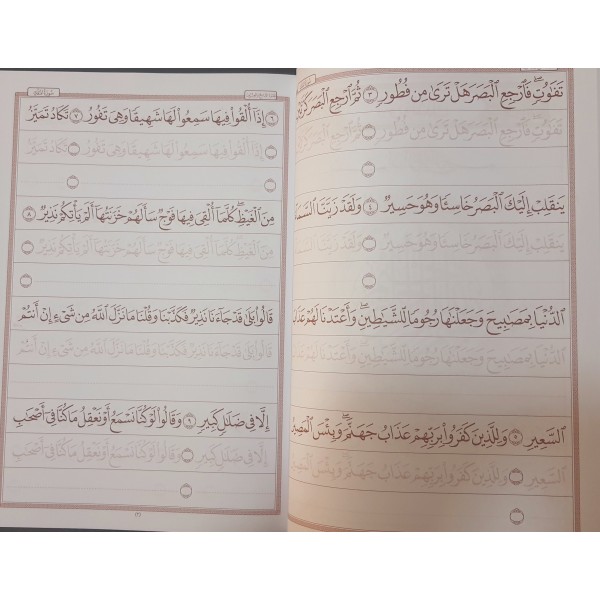 تَفَٰوُتٍۖ فَٱرْجِعِ ٱلْبَصَرَ هَلْ تَرَىٰ مِن فُطُورٍ ٣ ثُمَّ ٱرْجِعِ ٱلْبَصَرَ
تَفَٰوُتٍۖ فَٱرْجِعِ ٱلْبَصَرَ هَلْ تَرَىٰ مِن فُطُورٍ ثُمَّ ٱرْجِعِ ٱلْبَصَرَ
يَنقَلِبْ إِلَيْكَ ٱلْبَصَرُ خَاسِئًا وَهُوَ حَسِيرٌ ٤ وَلَقَدْ زَيَّنَّا
يَنقَلِبْ إِلَيْكَ ٱلْبَصَرُ خَاسِئًا وَهُوَ حَسِيرٌ وَلَقَدْ زَيَّنَّا
ٱلدُّنْيَا بِمَصَٰبِيحَ وَجَعَلْنَٰهَا رُجُومًا لِّلشَّيَٰطِينِۖ وَأَعْتَدْنَا لَهُمْ
ٱلدُّنْيَا بِمَصَٰبِيحَ وَجَعَلْنَٰهَا رُجُومًا لِّلشَّيَٰطِينِۖ وَأَعْتَدْنَا لَهُمْ
ٱلسَّعِيرِ ٥ وَلِلَّذِينَ كَفَرُوا۟ بِرَبِّهِمْ عَذَابُ جَهَنَّمَۖ وَبِئْسَ
ٱلسَّعِيرِ وَلِلَّذِينَ كَفَرُوا۟ بِرَبِّهِمْ عَذَابُ جَهَنَّمَۖ وَبِئْسَ
٦ إِذَآ أُلْقُوا۟ فِيهَا سَمِعُوا۟ لَهَا شَهِيقًا وَهِىَ تَفُورُ ٧ تَكَادُ تَمَيَّزُ
إِذَآ أُلْقُوا۟ فِيهَا سَمِعُوا۟ لَهَا شَهِيقًا وَهِىَ تَفُورُ تَكَادُ تَمَيَّزُ
مِنَ ٱلْغَيْظِۖ كُلَّمَآ أُلْقِىَ فِيهَا فَوْجٌ سَأَلَهُمْ خَزَنَتُهَآ أَلَمْ يَأْتِكُمْ نَذِيرٌ ٨
مِنَ ٱلْغَيْظِۖ كُلَّمَآ أُلْقِىَ فِيهَا فَوْجٌ سَأَلَهُمْ خَزَنَتُهَآ أَلَمْ يَأْتِكُمْ نَذِيرٌ
قَالُوا۟ بَلَىٰ قَدْ جَآءَنَا نَذِيرٌ فَكَذَّبْنَا وَقُلْنَا مَا نَزَّلَ ٱللَّهُ مِن شَىْءٍ إِنْ أَنتُمْ
قَالُوا۟ بَلَىٰ قَدْ جَآءَنَا نَذِيرٌ فَكَذَّبْنَا وَقُلْنَا مَا نَزَّلَ ٱللَّهُ مِن شَىْءٍ إِنْ أَنتُمْ
إِلَّا فِى ضَلَٰلٍ كَبِيرٍ ٩ وَقَالُوا۟ لَوْ كُنَّا نَسْمَعُ أَوْ نَعْقِلُ مَا كُنَّا فِىٓ أَصْحَٰبِ
إِلَّا فِى ضَلَٰلٍ كَبِيرٍ وَقَالُوا۟ لَوْ كُنَّا نَسْمَعُ أَوْ نَعْقِلُ مَا كُنَّا فِىٓ أَصْحَٰبِ